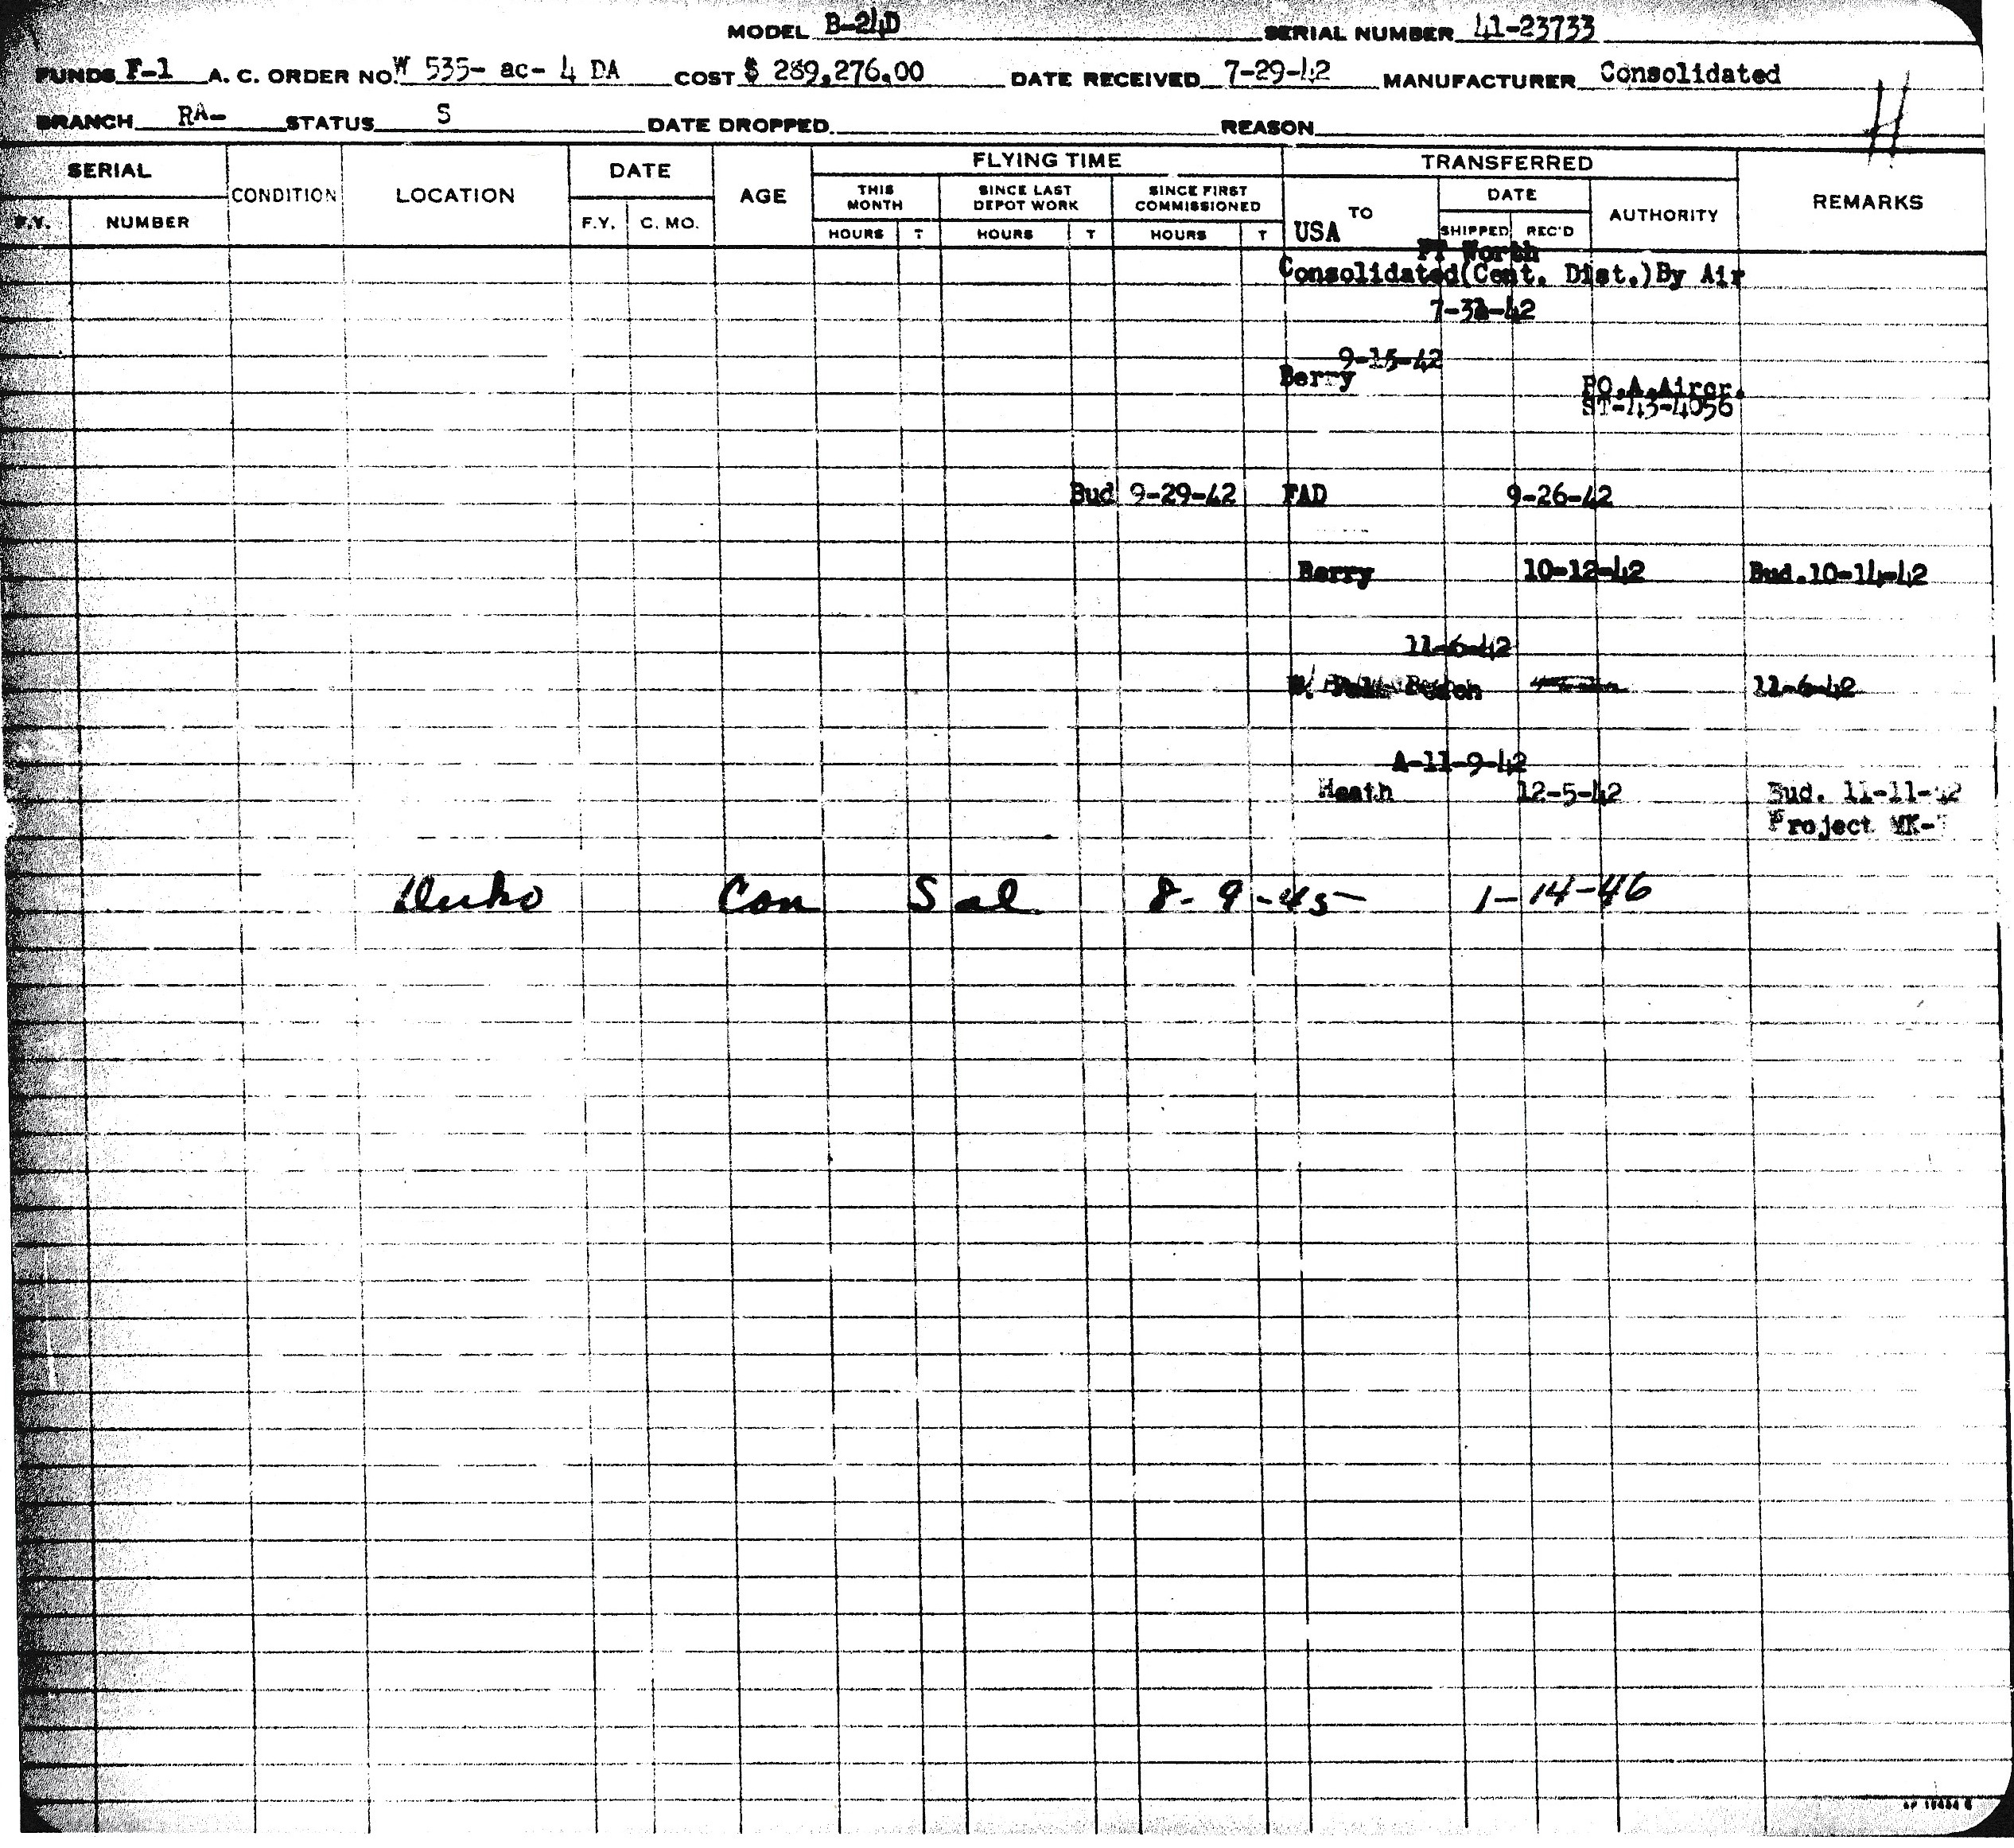 MODEL B-24D SERIAL NUMBER 41-23733
FUNDS F-1 A. C. ORDER NO. W 535- ac- 4 DA COST $ 289,276.00 DATE RECEIVED 7-29-42 MANUFACTURER Consolidated
BRANCH RA- STATUS S DATE DROPPED REASON
SERIAL CONDITION LOCATION DATE AGE FLYING TIME TRANSFERRED REMARKS
THIS MONTH SINCE LAST DEPOT WORK SINCE FIRST COMMISSIONED TO DATE AUTHORITY
F.Y. NUMBER F.Y. C. MO. HOURS T HOURS T HOURS T USA SHIPPED REC'D
FT Worth
Consolidated(Cent. Dist.)By Air
9-15-42
Berry PO.A.Aircr.
ST-43-4056
Bud 9-29-42 FAD 9-26-42
Berry 10-12-42 Bud.10-14-42
11-6-42
Beach 11-6-42
A-11-9-42
Heath 12-5-42 Bud. 11-11-42
Project MK-
Con Sal 8-9-45 1-14-46